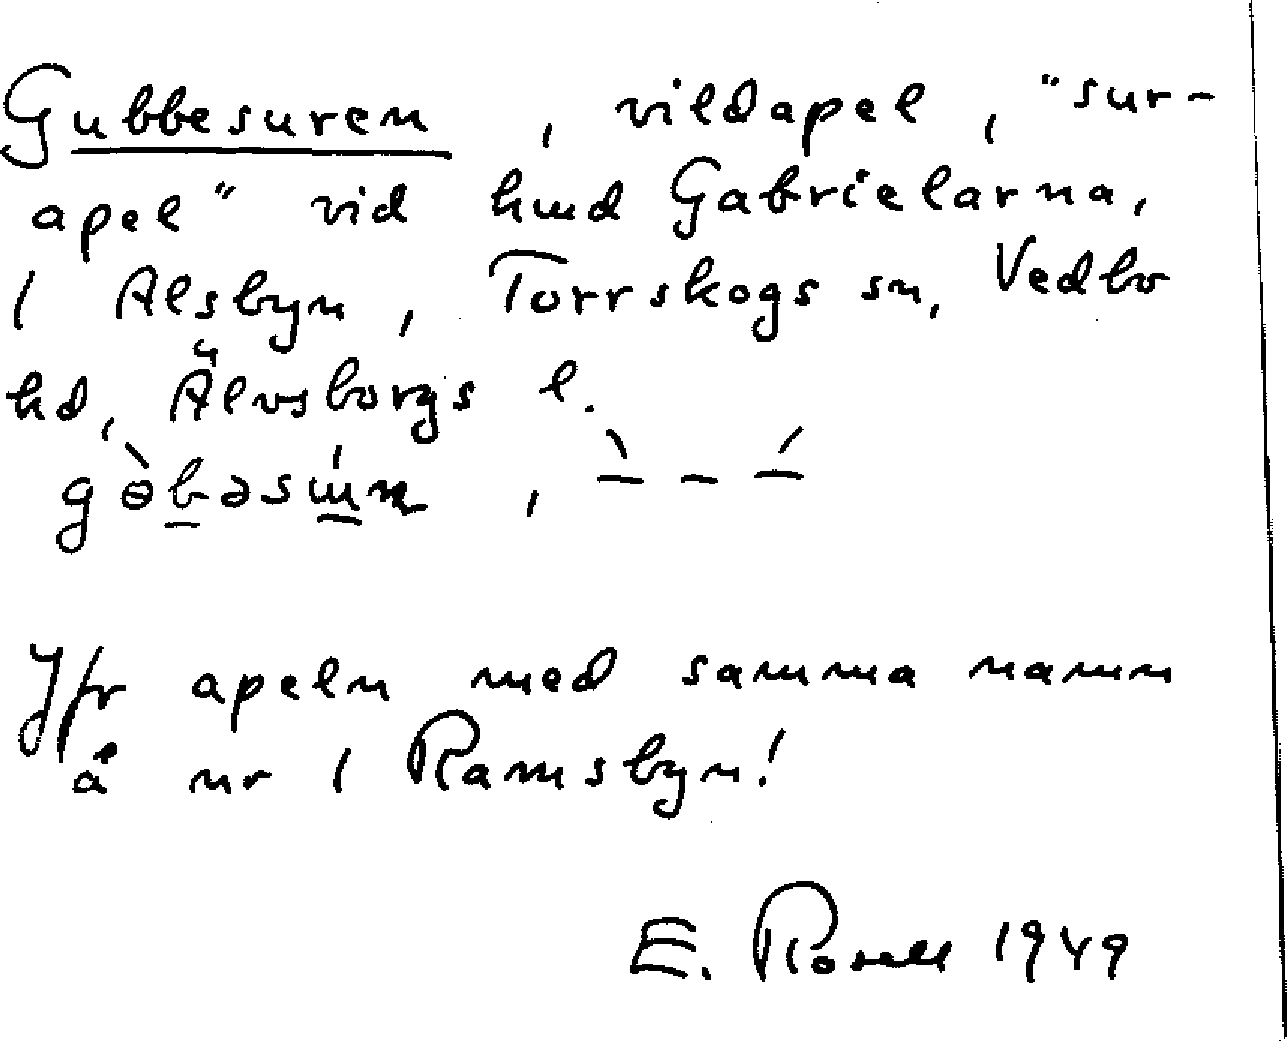 Gubbesuren, vildapel, "sur-
apel" vid hmd Gabrielarna,
1 Alsbyn, Torrskogs sn, Vedbo
hd, Älvsborgs l.
Jfr apeln med samma namn
å nr 1 Ramsbyn!
E. Rosell 1949